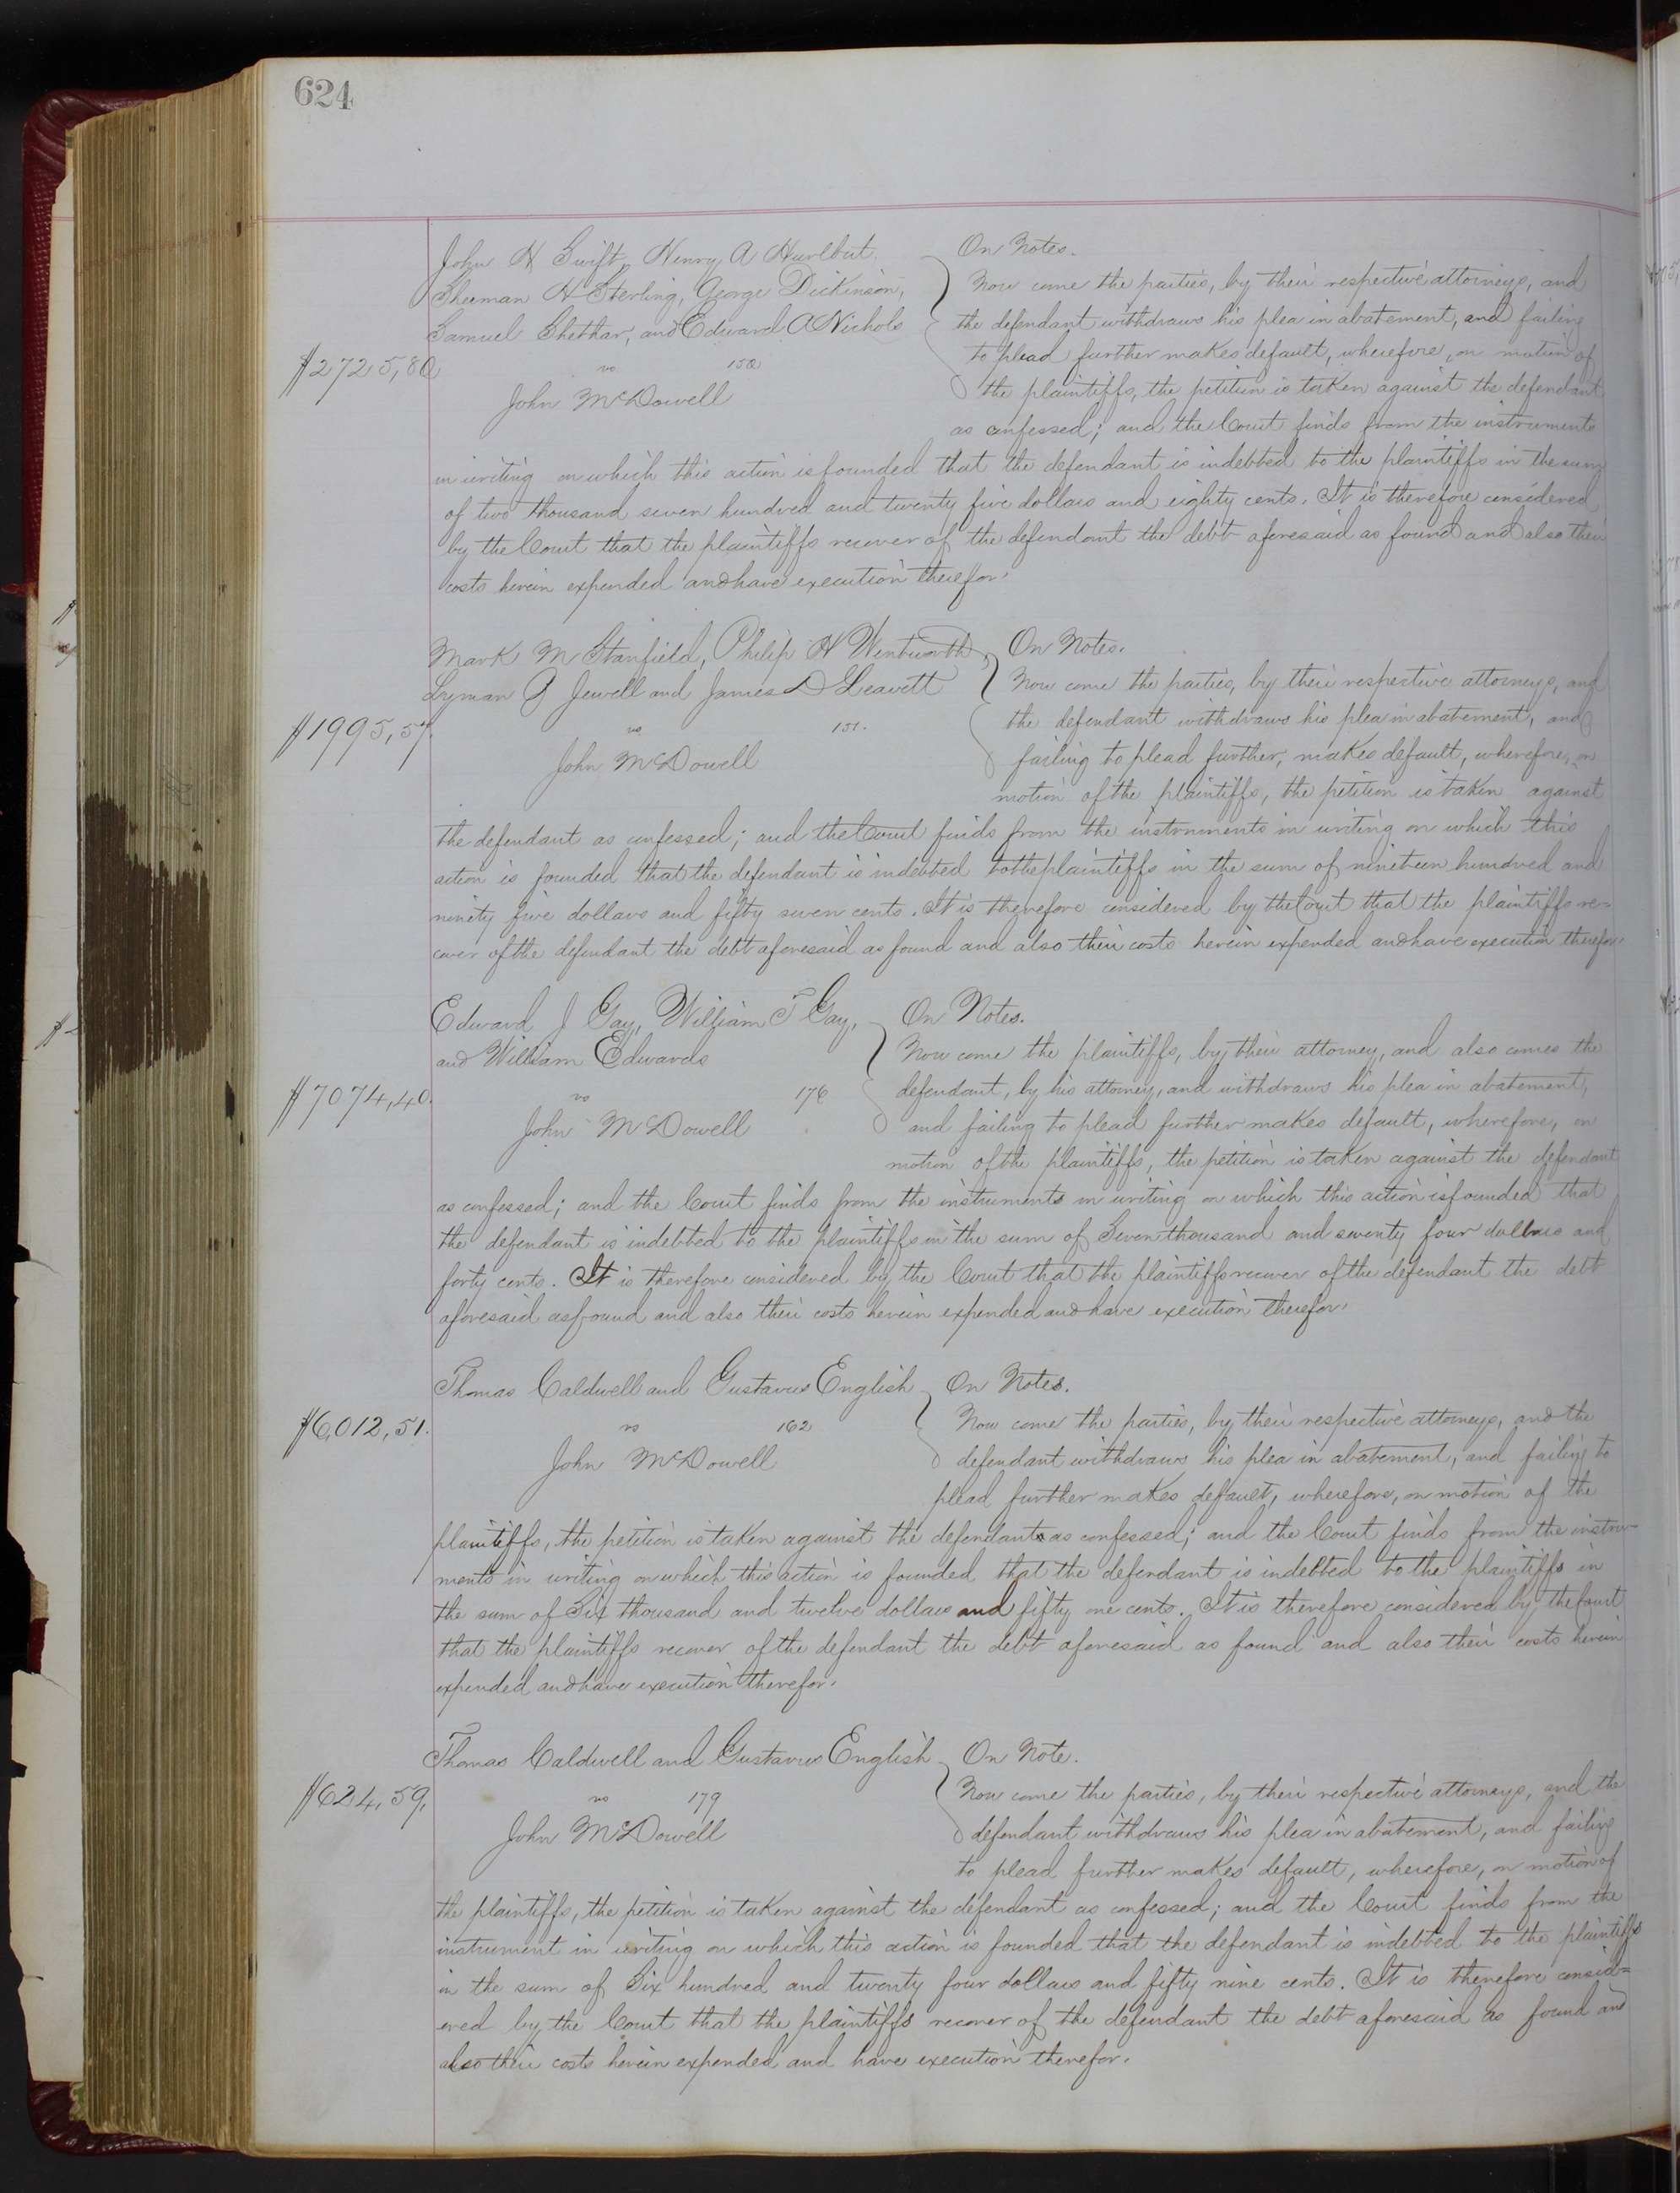 624
John H Swift, Henry A Hurlbut.
Sherman H Sterling, George Dickinson,
Samuel Shethar, and Edward A Nichols
$2725,80
vs 150
John McDowell
On Notes.
Now come the parties, by their respective attorneys, and
the defendant withdraws his plea in abatement, and failing
to plead further makes default, wherefore, on motion of
the plaintiffs, the petition is taken against the defendant
as confessed; and the Court finds from the instruments
in writing on which this action is founded that the defendant is indebted to the plaintiffs in the sum
of two thousand seven hundred and twenty five dollars and eighty cents. It is therefore considered
by the Court that the plaintiffs recover of the defendant the debt aforesaid as found and also their
costs herein expended and have execution therefor.
Mark M Stanfield, Philip H Wentworth,
Lyman G Jewell and James D Leavett
$1995,57.
vs 151.
John McDowell
On Notes.
Now come the parties, by their respective attorneys, and
the defendant withdraws his plea in abatement, and
failing to plead further, makes default, wherefore, on
motion of the plaintiffs, the petition is taken against
the defendant as confessed; and the Court finds from the instruments in writing on which this
action is founded that the defendant is indebted to the plaintiffs in the sum of nineteen hundred and
ninety five dollars and fifty seven cents. It is therefore considered by the Court that the plaintiffs re-
cover of the defendant the debt aforesaid as found and also their costs herein expended and have execution therefor.
Edward J Gay, William T Gay,
and William Edwards
$7074,40.
vs 176
John McDowell
On Notes.
Now come the plaintiffs, by their attorney, and also comes the
defendant, by his attorney, and withdraws his plea in abatement,
and failing to plead further makes default, wherefore, on
motion of the plaintiffs, the petition is taken against the defendant
as confessed; and the Court finds from the instruments in writing on which this action is founded that
the defendant is indebted to the plaintiffs in the sum of Seven thousand and seventy four dollars and
forty cents. It is therefore considered by the Court that the plaintiffs recover of the defendant the debt
aforesaid as found and also their costs herein expended and have execution therefor.
Thomas Caldwell and Gustavus English
$6,012,51.
vs 162
John McDowell
On Notes.
Now come the parties, by their respective attorneys, and the
defendant withdraws his plea in abatement, and failing to
plead further makes default, wherefore, on motion of the
plaintiffs, the petition is taken against the defendant as confessed; and the Court finds from the instru-
ments in writing on which this action is founded that the defendant is indebted to the plaintiffs in
the sum of Six thousand and twelve dollars and fifty one cents. It is therefore considered by the Court
that the plaintiffs recover of the defendant the debt aforesaid as found and also their costs herein
expended and have execution therefor.
Thomas Caldwell and Gustavus English
$624,59,
vs 179
John McDowell
On Note.
Now come the parties, by their respective attorneys, and the
defendant withdraws his plea in abatement, and failing
to plead further makes default, wherefore, on motion of
the plaintiffs, the petition is taken against the defendant as confessed; and the Court finds from the
instrument in writing on which this action is founded that the defendant is indebted to the plaintiffs
in the sum of Six hundred and twenty four dollars and fifty nine cents. It is therefore consid=
ered by the Court that the plaintiffs recover of the defendant the debt aforesaid as found and
also their costs herein expended and have execution therefor.